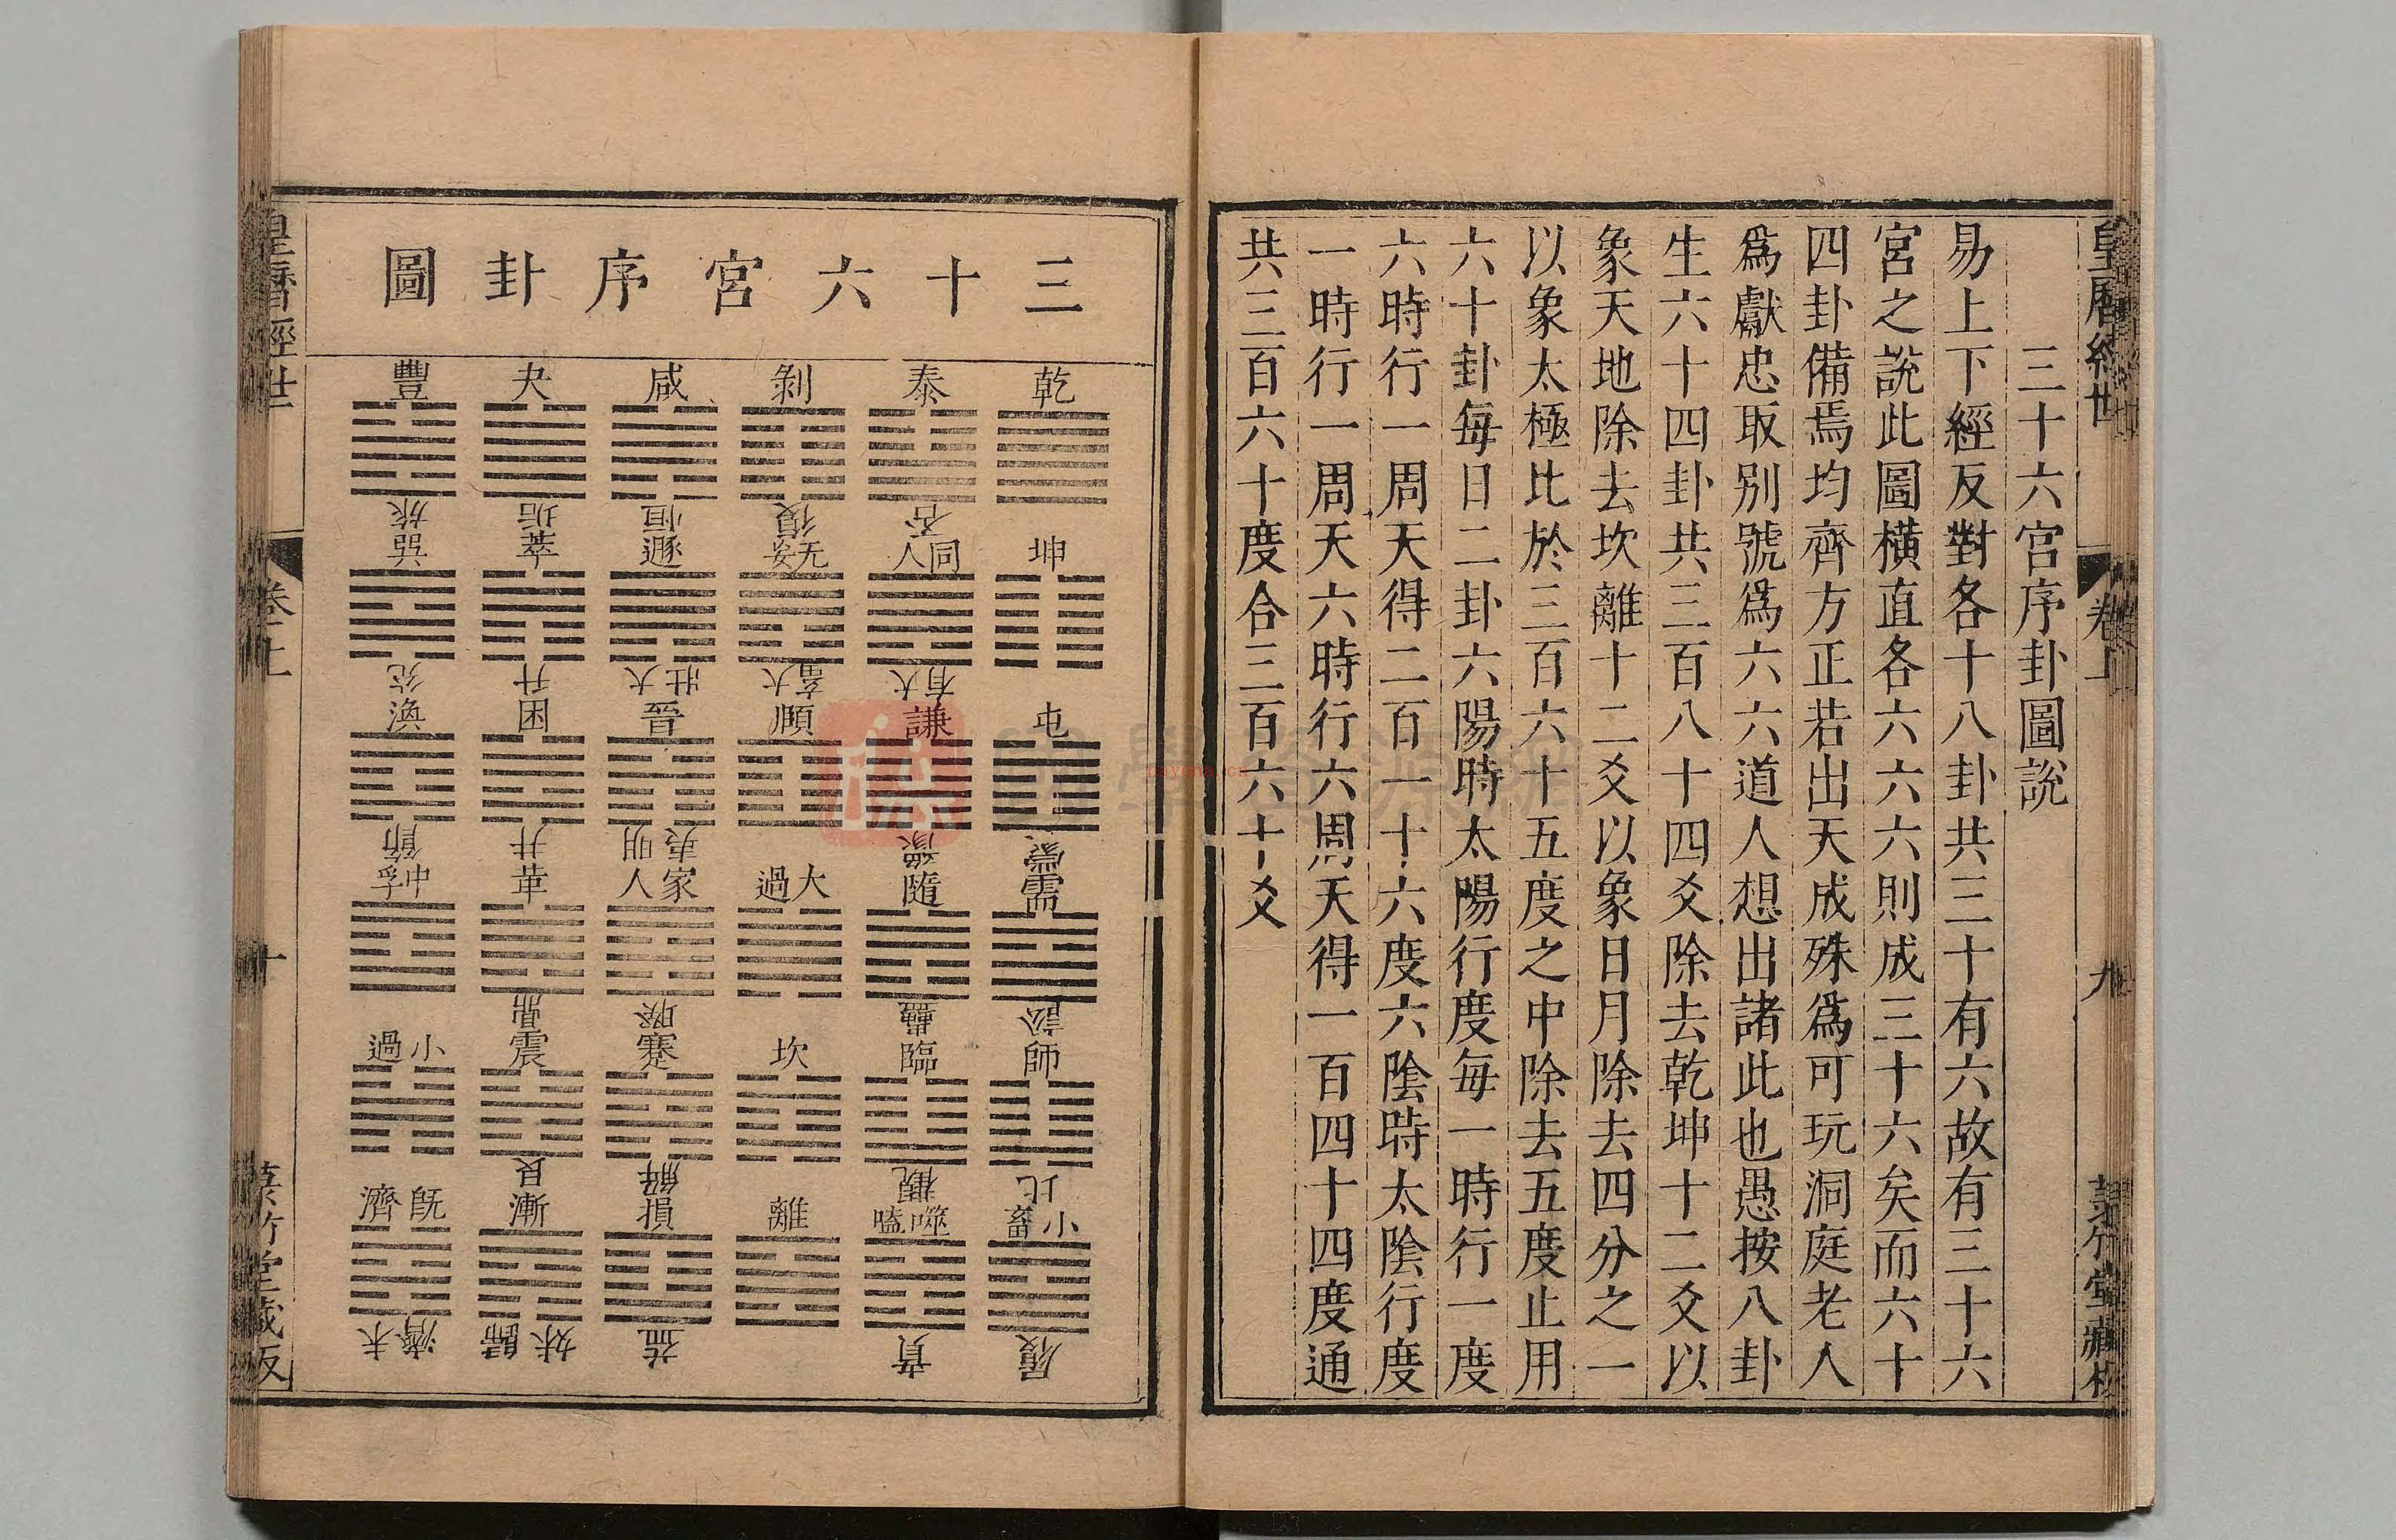 皇曆經世
卷上
九
菉竹堂藏板
三十六宮序卦圖說
易上下經反對各十八卦共三十有六故有三十六
宮之說此圖橫直各六六六則成三十六矣而六十
四卦備焉均齊方正若出天成殊爲可玩洞庭老人
爲獻忠取別號爲六六道人想出諸此也愚按八卦
生六十四卦共三百八十四爻除去乾坤十二爻以
象天地除去坎離十二爻以象日月除去四分之一
以象太極比於三百六十五度之中除去五度止用
六十卦每日二卦六陽時太陽行度每一時行一度
六時行一周天得二百一十六度六陰時太陰行度
一時行一周天六時行六周天得一百四十四度通
共三百六十度合三百六十爻
三十六宮序卦圖
乾 泰 剝 咸 夬 豐
否 復 恒 姤 旅
坤 同人 无妄 遯 萃 巽
大有 大畜 大壯 升 兌
屯 謙 頤 晉 困 渙
蒙 豫 明夷 井 節
需 隨 大過 家人 革 中孚
訟 蠱 睽 鼎
師 臨 坎 蹇 震 小過
比 觀 解 艮
小畜 噬嗑 離 損 漸 既濟
履 賁 益 歸妹 未濟
皇曆經世
卷上
十
菉竹堂藏板